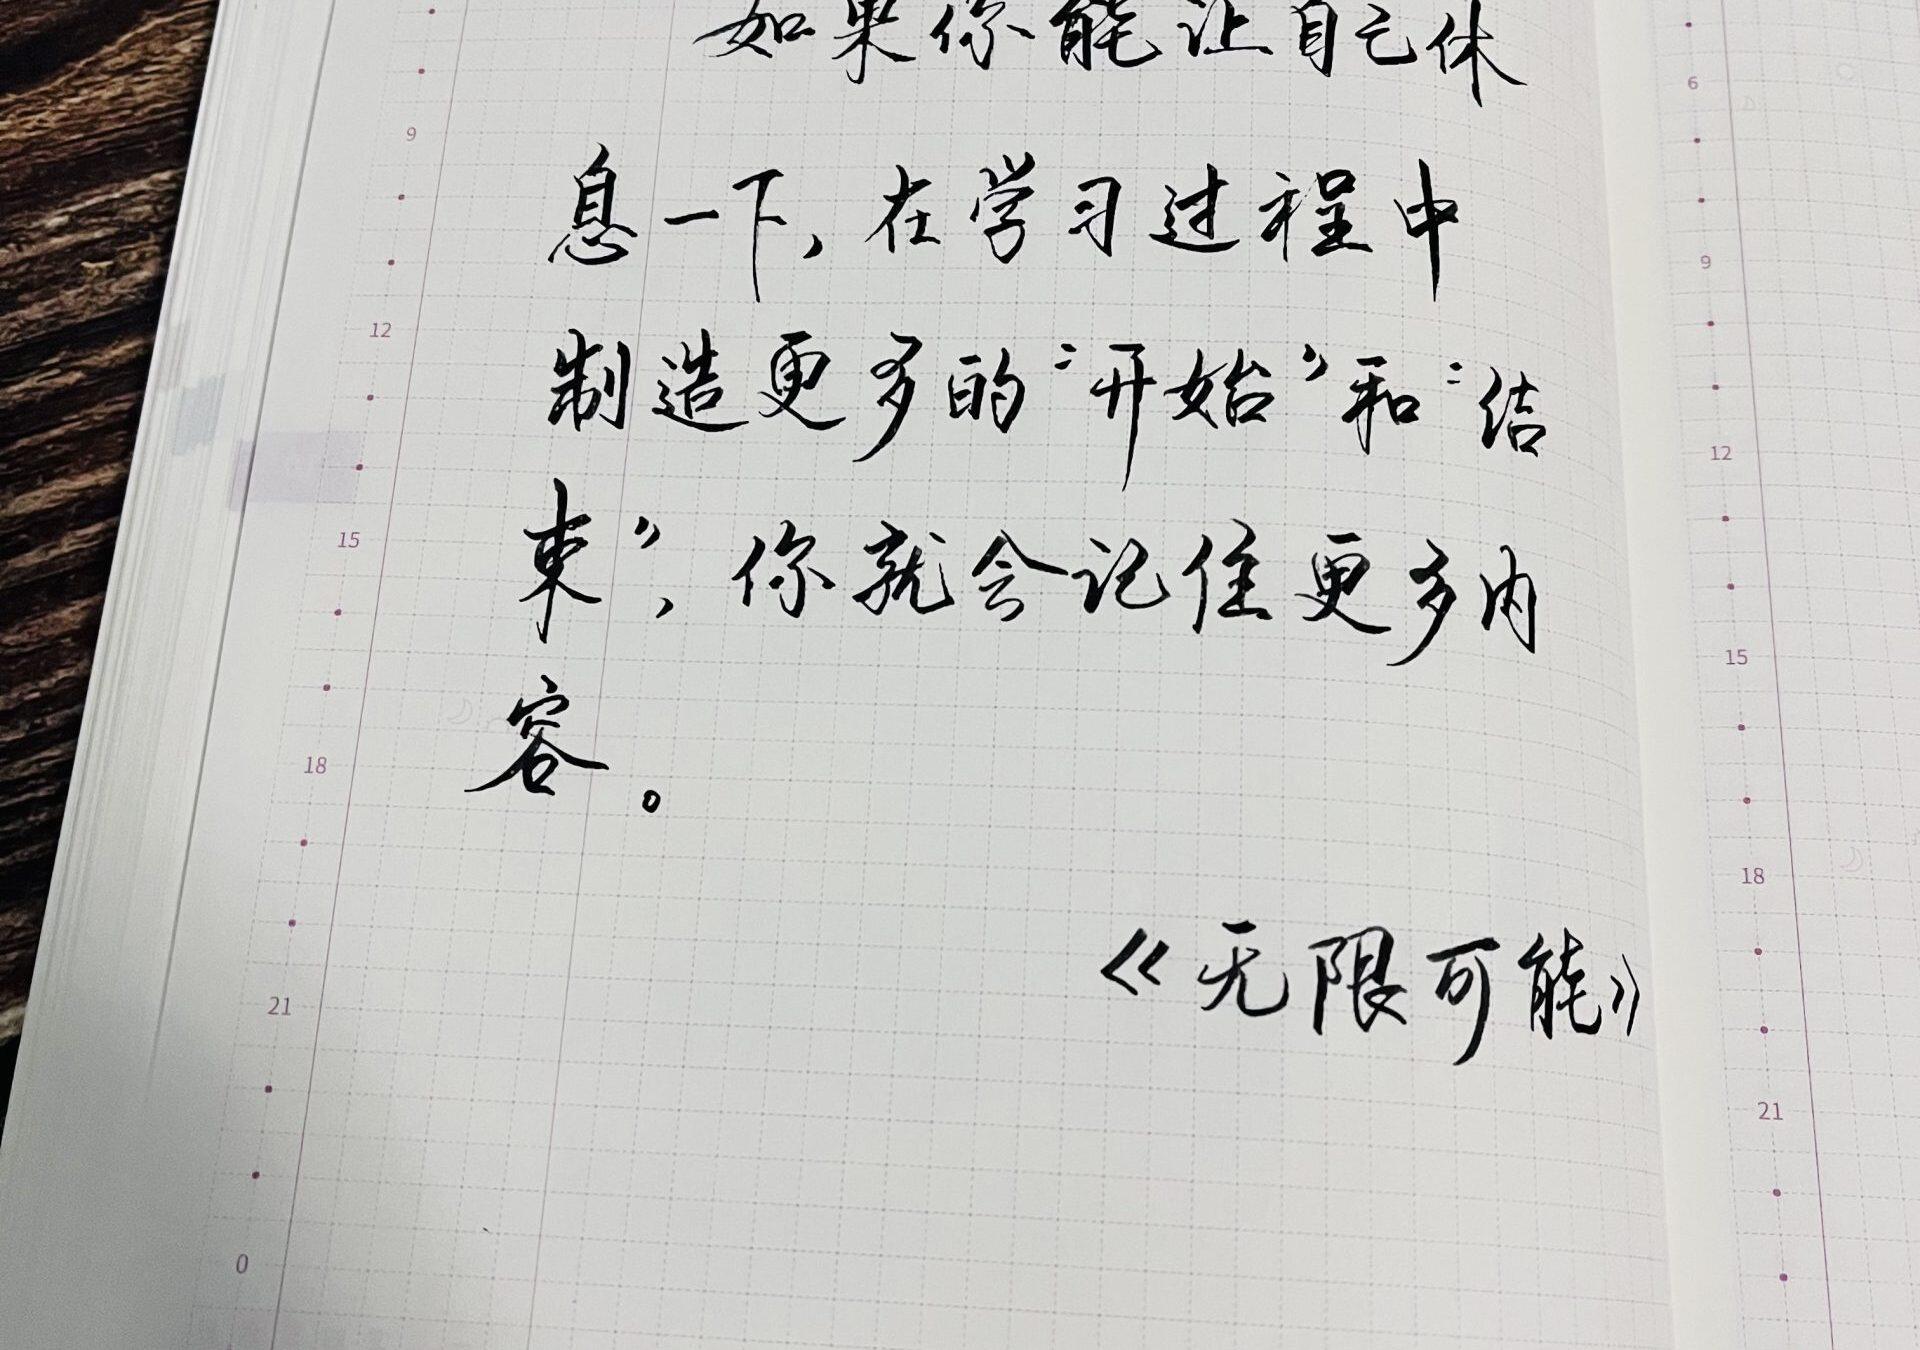 如果你能让自己休
息一下，在学习过程中
制造更多的“开始”和“结
束”，你就会记住更多内
容。
《无限可能》
9
12
15
18
21
0
6
9
12
15
18
21